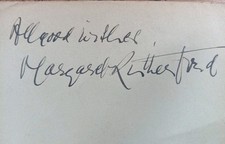 All good wishes,
Margaret Rutherford